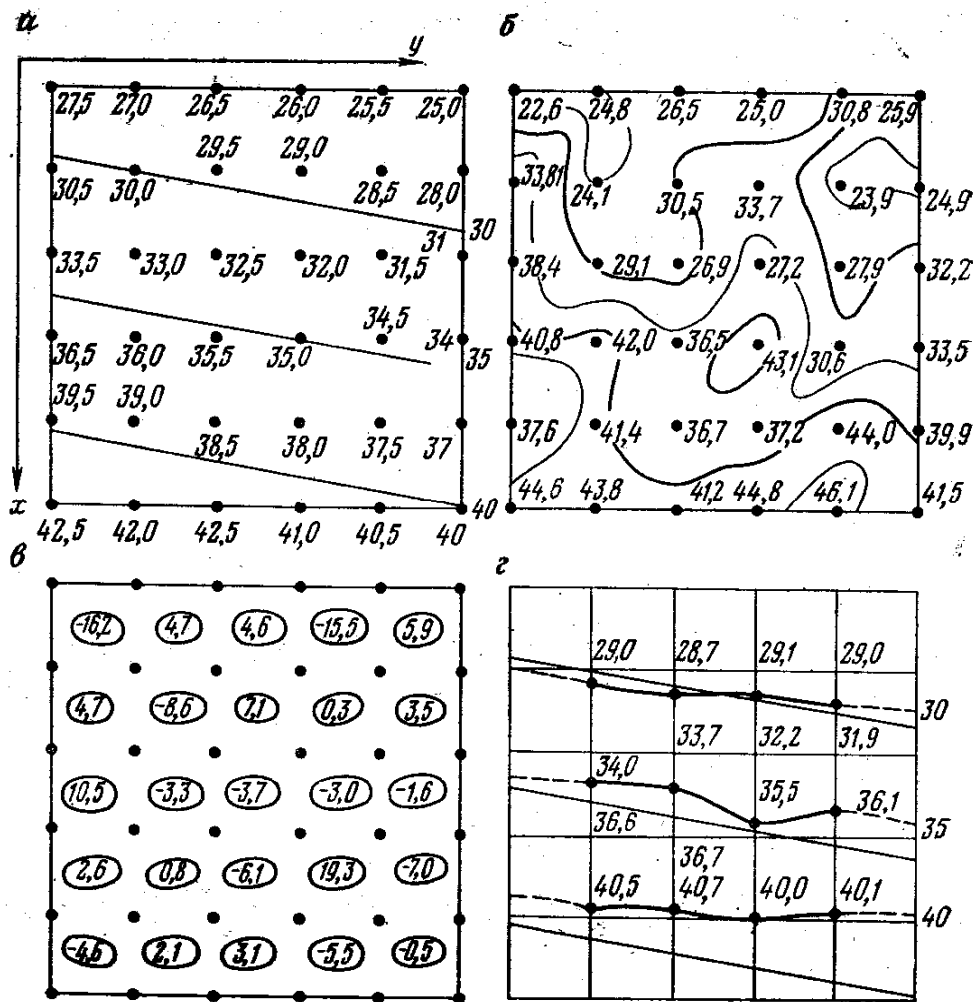 а
y
27,5 27,0 26,5 26,0 25,5 25,0
29,5 29,0
30,5 30,0 28,5 28,0
30
31
33,5 33,0 32,5 32,0 31,5
34,5
36,5 36,0 35,5 35,0 34
35
39,5 39,0
38,5 38,0 37,5 37
x
40
42,5 42,0 42,5 41,0 40,5 40
б
22,6 24,8 26,5 25,0 30,8 25,9
33,81 24,1 30,5 33,7 23,9 24,9
38,4 29,1 26,9 27,2 27,9 32,2
40,8 42,0 36,5 43,1 30,6 33,5
37,6 41,4 36,7 37,2 44,0 39,9
44,6 43,8 41,2 44,8 46,1 41,5
в
-16,2 4,7 4,6 -15,5 5,9
4,7 -8,6 7,1 0,3 3,5
10,5 -3,3 -3,7 -3,0 -1,6
2,6 0,8 -6,1 19,3 -7,0
-4,6 2,1 3,1 -5,5 -0,5
г
29,0 28,7 29,1 29,0
30
33,7 32,2 31,9
34,0
35,5 36,1
35
36,6
36,7
40,5 40,7 40,0 40,1
40